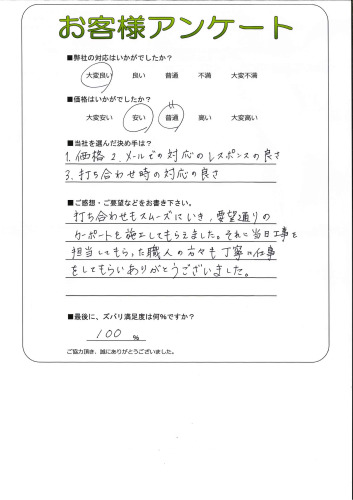 お客様アンケート
■弊社の対応はいかがでしたか?
大変良い 良い 普通 不満 大変不満
■価格はいかがでしたか?
大変安い 安い 普通 高い 大変高い
■当社を選んだ決め手は?
1.価格 2.メールでの対応のレスポンスの良さ
3.打ち合わせ時の対応の良さ
■ご感想・ご要望などをお書き下さい。
打ち合わせもスムーズにいき、要望通りの
カーポートを施工してもらえました。それに当日工事を
担当してもらった職人の方々も丁寧な仕事
をしてもらいありがとうございました。
■最後に、ズバリ満足度は何%ですか?
100 %
ご協力頂き、誠にありがとうございました。